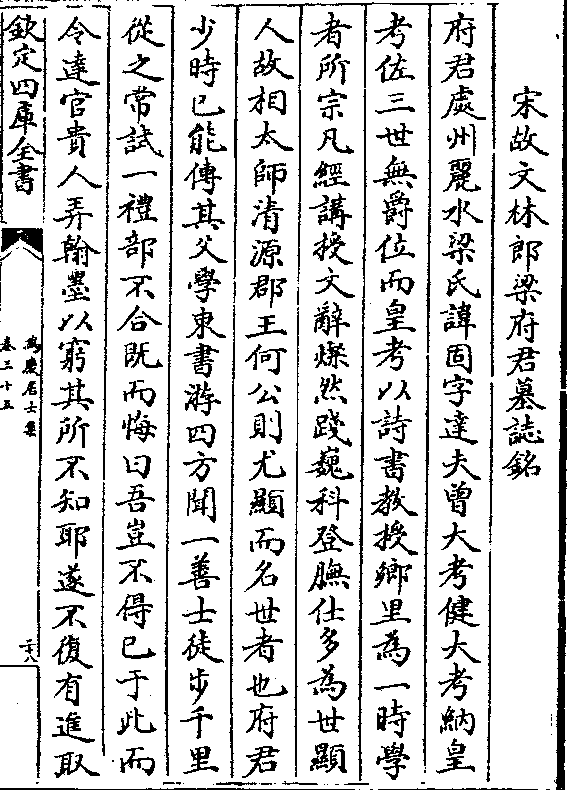 宋故文林郎梁府君墓誌銘
府君處州麗水梁氏諱固字達夫曾大考健大考納皇
考佐三世無爵位而皇考以詩書教授鄉里為一時學
者所宗凡經講授文辭燦然踐巍科登膴仕多為世顯
人故相太師清源郡王何公則尤顯而名世者也府君
少時已能傳其父學束書游四方聞一善士徒步千里
從之常試一禮部不合既而悔曰吾豈不得已于此而
令達官貴人弄翰墨以窮其所不知耶遂不復有進取
欽定四庫全書
鴻慶居士集
卷三十五
二十八